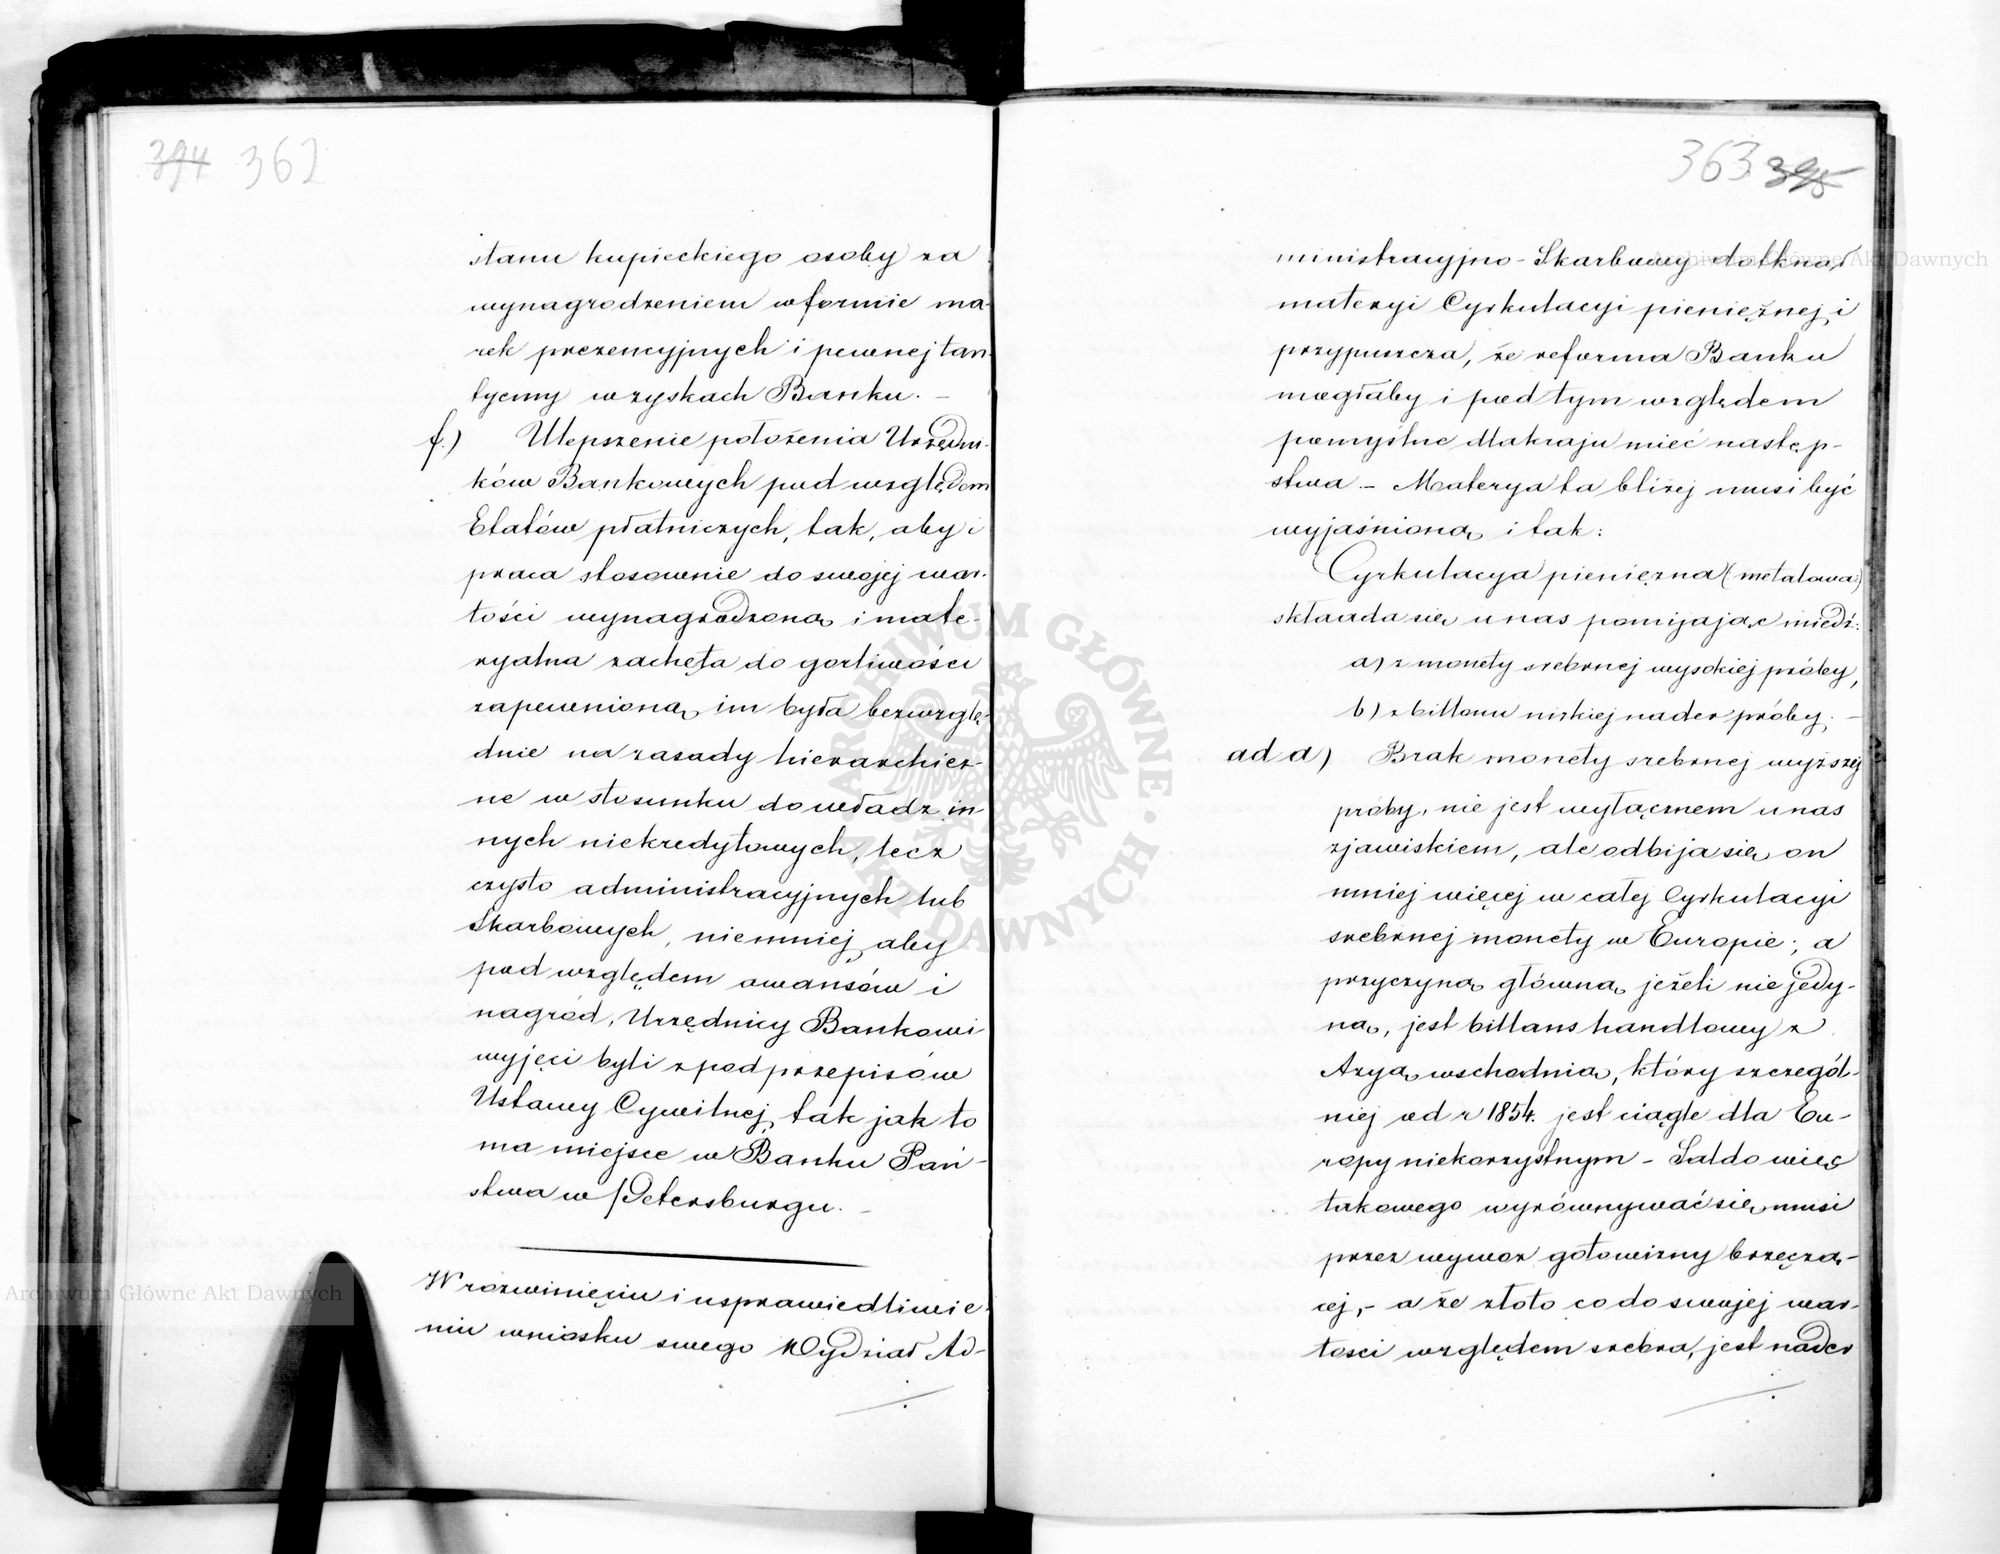 394 362
stanu kupieckiego osoby za
wynagrodzeniem w formie ma-
rek prezencyjnych i pewnej tan-
tyemy w zyskach Banku. –
f.) Ulepszenie położenia Urzędni-
ków Bankowych pod względem
Etatów płatniczych, tak, aby i
praca stosownie do swojej war-
tości wynagrodzoną i mate-
ryalna zachęta do gorliwości
zapewnioną im była bezwzglę-
dnie na zasady hierarchicz-
ne w stosunku do władz in-
nych niekredytowych, lecz
czysto administracyjnych lub
Skarbowych, niemniej, aby
pod względem awansów i
nagród, Urzędnicy Bankowi
wyjęci byli z pod przepisów
Ustawy Cywilnej, tak jak to
ma miejsce w Banku Pań-
stwa w Petersburgu. –
W rozwinięciu i usprawiedliwie-
niu wniosku swego Wydział Ad-
363 395
ministracyjno-Skarbowy dotknął
materyi Cyrkulacyi pieniężnej, i
przypuszcza, że reforma Banku
mogłaby i pod tym względem
pomyślne dla kraju mieć następ-
stwa – Materya ta bliżej musi być
wyjaśnioną i tak:
Cyrkulacya pieniężna (metalowa:)
skłaada się u nas pomijając miedź:
a) z monety srebrnej wysokiej próby,
b) z billonu nizkiej nader próby. –
ad a) Brak monety srebrnej wyższej
próby, nie jest wyłącznem u nas
zjawiskiem, ale odbija się on
mniej więcej w całej Cyrkulacyi
srebrnej monety w Europie; a
przyczyną główną, jeżeli nie jedy-
ną, jest billans handlowy z
Azyą wschodnią, który szczegól-
niej od r 1854. jest ciągle dla Eu-
ropy niekorzystnym – Saldo więc
takowego wyrównywać się musi
przez wywóz gotowizny brzęczą-
cej, – a że złoto co do swojej war-
tości względem srebra, jest nader
Archiwum Główne Akt Dawnych
Archiwum Główne Akt Dawnych
ARCHIWUM GŁÓWNE AKT DAWNYCH